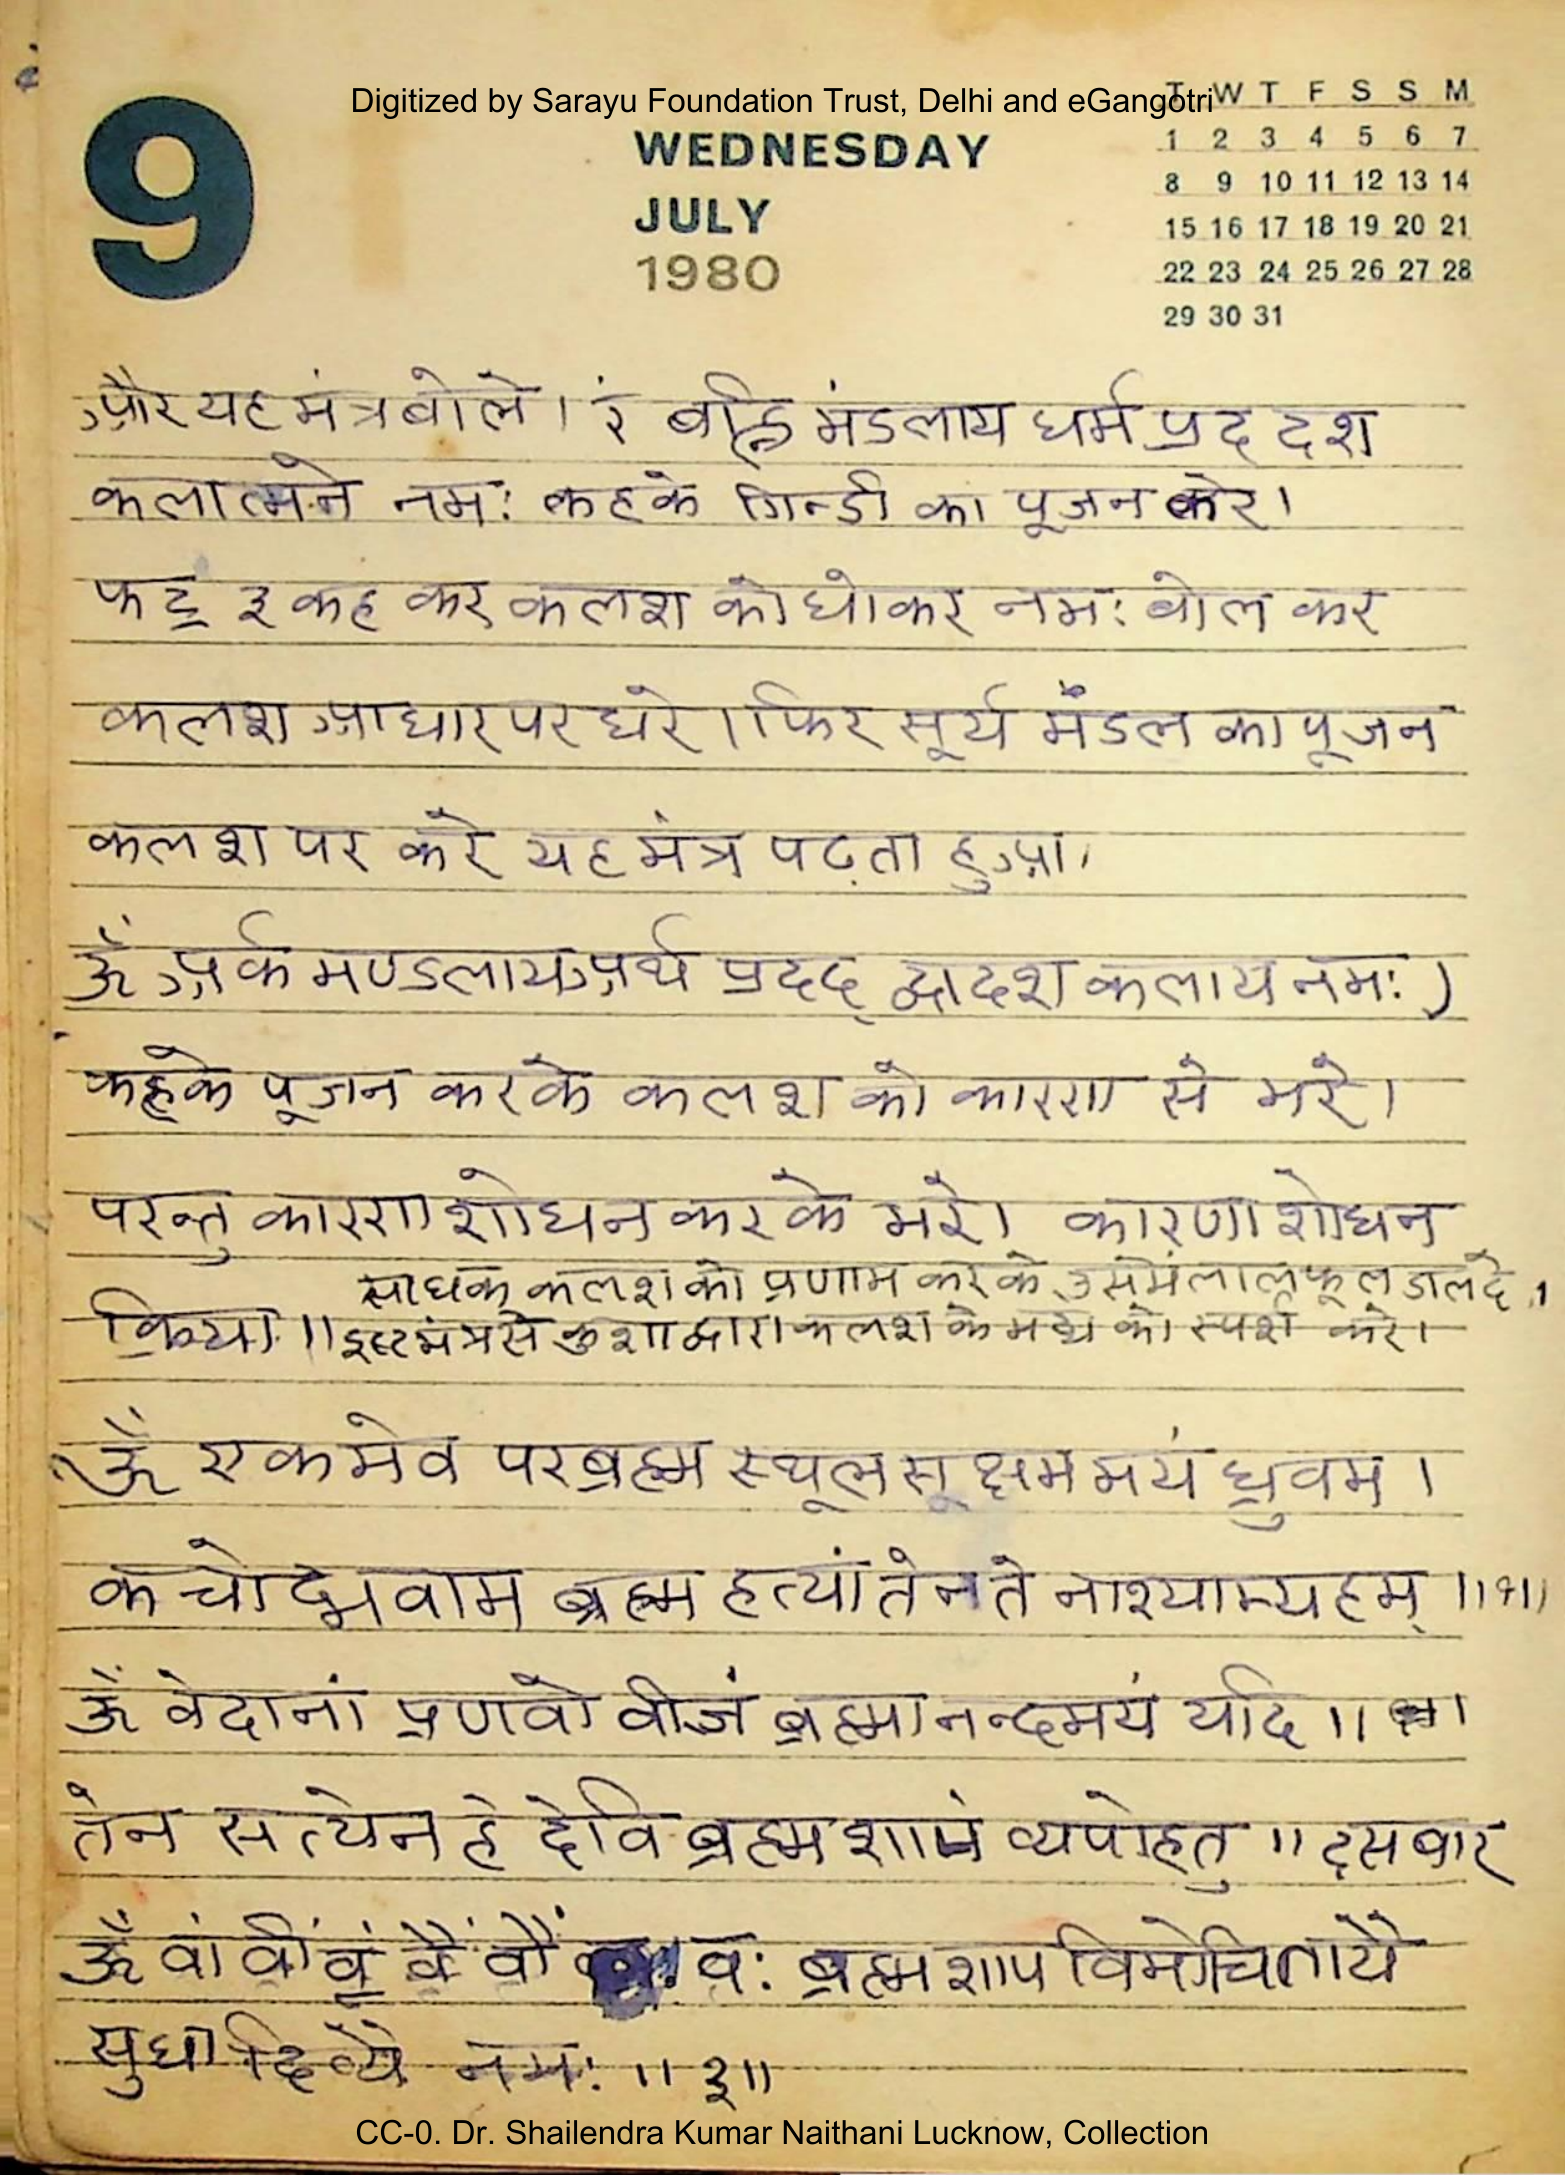 Digitized by Sarayu Foundation Trust, Delhi and eGangotri
9
WEDNESDAY
JULY
1980
T W T F S S M
1 2 3 4 5 6 7
8 9 10 11 12 13 14
15 16 17 18 19 20 21
22 23 24 25 26 27 28
29 30 31
और यह मंत्र बोले। रं बह्नि मंडलाय धर्म प्रद दश
कलात्मने नमः कहके गिन्डी का पूजन करे।
फट् ३ कह कर कलश को धोकर नमः बोल कर
कलश आधार पर धरे। फिर सूर्य मंडल का पूजन
कलश पर करे यह मंत्र पढ़ता हुआ।
ॐ अर्क मण्डलाय अर्थ प्रदद् द्वादश कलाय नमः)
कहके पूजन करके कलश को कारण से भरे।
परन्तु कारण शोधन करके भरे। कारण शोधन
साधक कलश को प्रणाम करके उसमें लाल फूल डाल दे।
क्रिया।। इष्टमंत्र से कुशा द्वारा कलश के मद्य को स्पर्श करे।
ॐ एकमेव परब्रह्म स्थूल सूक्षम मयं ध्रुवम।
कचोद्भवाम ब्रह्म हत्यां तेन ते नाश्याम्यहम् ।।१।।
ॐ वेदानां प्रणवो वीजं ब्रह्मानन्दमयं यदि ।।
तेन सत्येन हे देवि ब्रह्म शापं व्यपोहतु ।। दस बार
ॐ वां वीं वूं वैं वौं वः ब्रह्म शाप विमोचितायै
सुधा दिव्यै नमः ।। ३।।
CC-0. Dr. Shailendra Kumar Naithani Lucknow, Collection